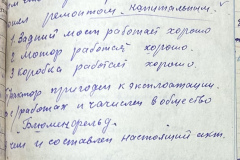 ремонтом капитальным.
1 Задний мост работает хорошо
2 мотор работает хорошо.
3 коробка работает хорошо.
Трактор пригоден к эксплоатации.
работах и зачислен в общество
Блюменфельд.
и составлен настоящий акт.